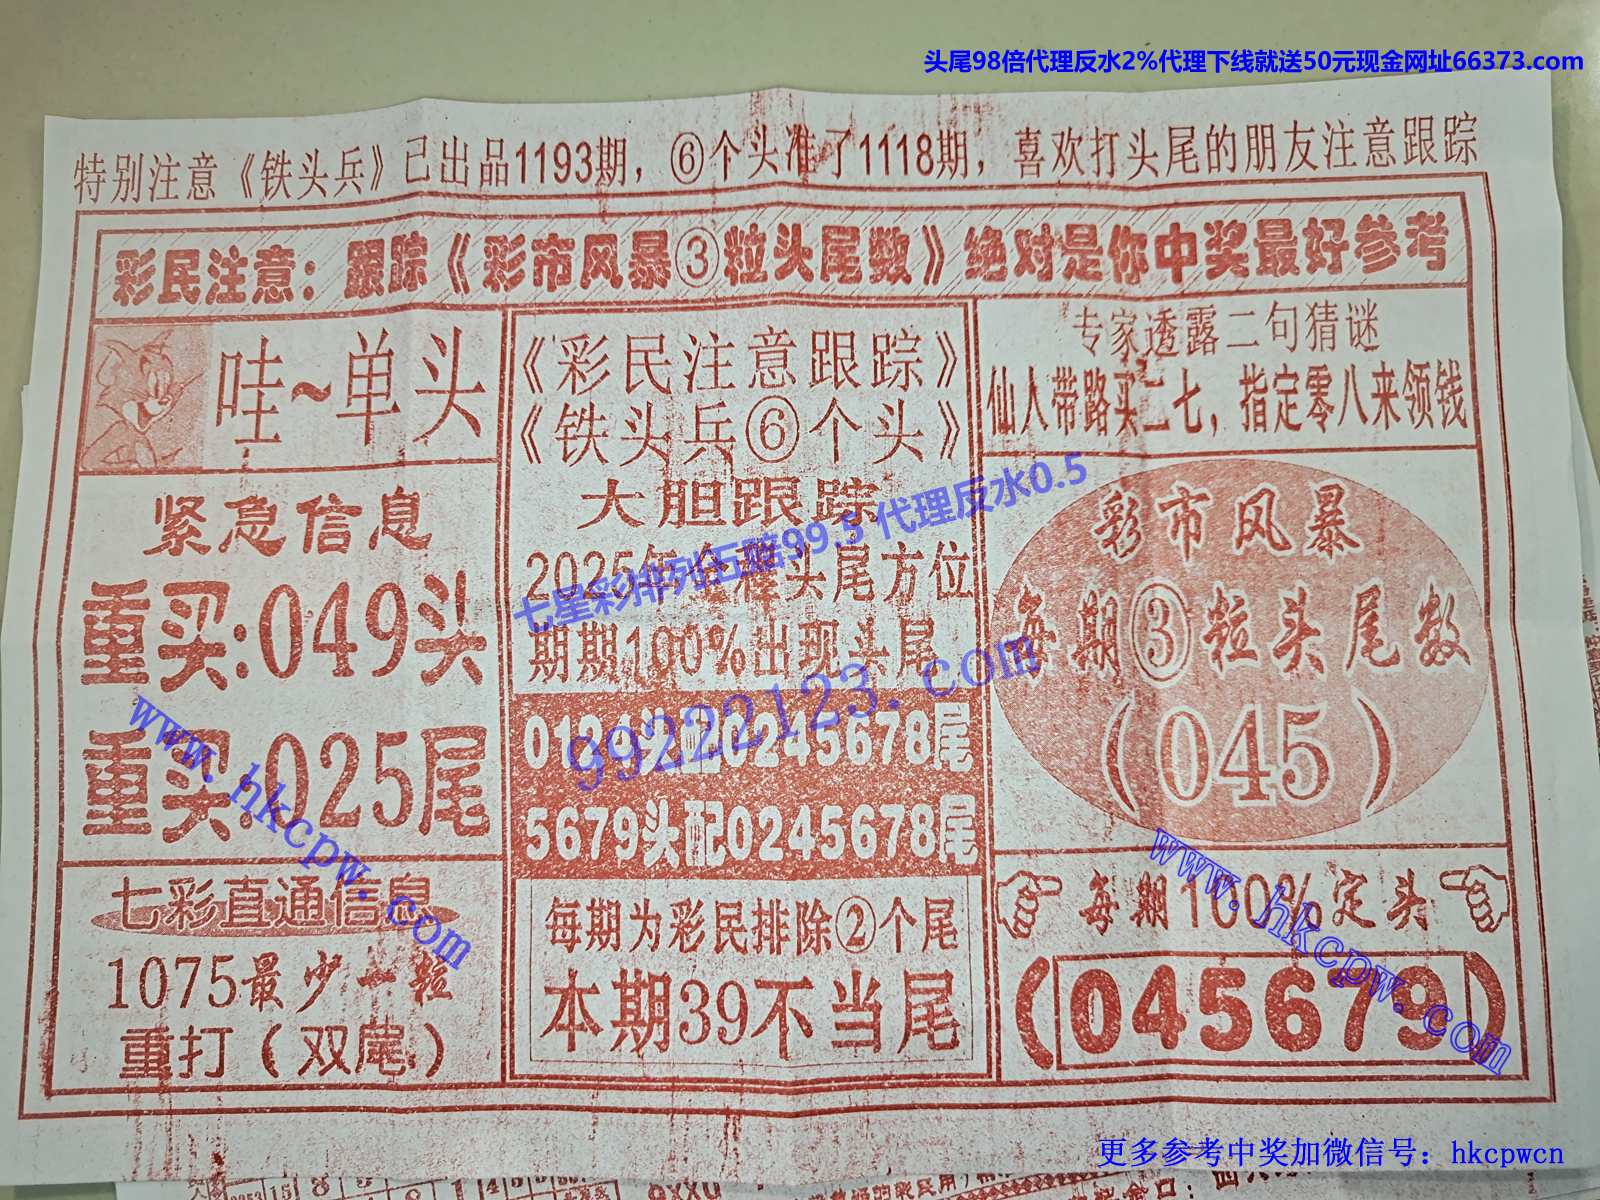 头尾98倍代理反水2%代理下线就送50元现金网址66373.com
特别注意《铁头兵》己出品1193期，⑥个头准了1118期，喜欢打头尾的朋友注意跟踪
彩民注意：跟踪《彩市风暴③粒头尾数》绝对是你中奖最好参考
哇~单头
紧急信息
重买:049头
重买:025尾
七彩直通信息
1075最少一粒
重打（双尾）
《彩民注意跟踪》
《铁头兵⑥个头》
大胆跟踪
2025年全程头尾方位
期期100%出现头尾
0124头配0245678尾
5679头配0245678尾
每期为彩民排除②个尾
本期39不当尾
专家透露二句猜谜
仙人带路买二七，指定零八来领钱
彩市风暴
每期③粒头尾数
（045）
每期100%定头
（045679）
七星彩排列五赔99.5 代理反水0.5
99222123.com
www.hkcpw.com
www.hkcpw.com
更多参考中奖加微信号：hkcpwcn